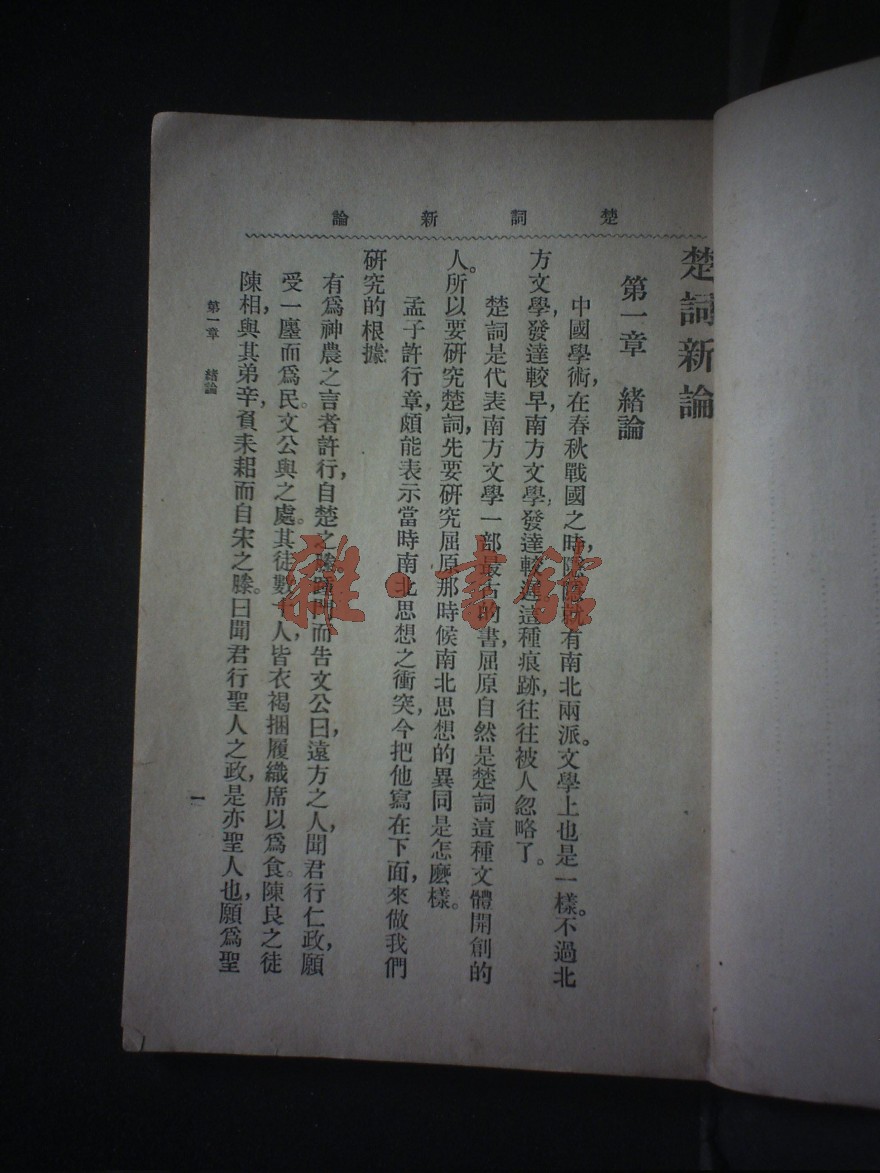 楚詞新論
楚詞新論
第一章 緒論
中國學術，在春秋戰國之時，隱隱有南北兩派。文學上也是一樣。不過北
方文學，發達較早，南方文學，發達較遲，這種痕跡，往往被人忽略了。
楚詞是代表南方文學一部最古的書，屈原自然是楚詞這種文體開創的
人。所以要研究楚詞，先要研究屈原那時候南北思想的異同是怎麽樣。
孟子許行章，頗能表示當時南北思想之衝突，今把他寫在下面，來做我們
研究的根據：
有爲神農之言者許行，自楚之滕，踵門而告文公曰，遠方之人，聞君行仁政，願
受一廛而爲民。文公與之處。其徒數十人，皆衣褐捆履織席以爲食。陳良之徒
陳相，與其弟辛，負耒耜而自宋之滕。曰聞君行聖人之政，是亦聖人也，願爲聖
第一章 緒論
一
雜·書館